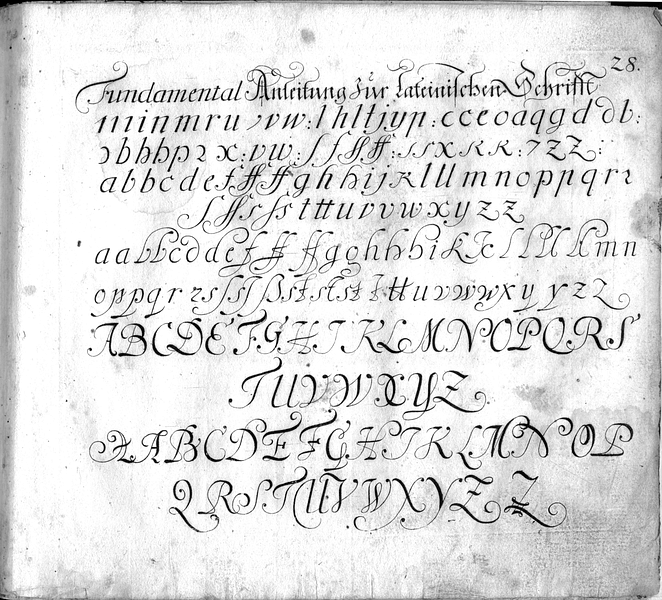 28.
Fundamental Anleitung zur Lateinischen Schrifft
iiiinmru vvw: l hlltjyp: cceoaqgd db:
bhhp2 x: vw: ſſſſff: ıſxKR: 7ZZ:
abbcdefffffghhijklllmnoppqr2
ſſſſſstttuvvwxyzz
aabbcddeffffffgghhhikJcllllllmn
oppqr2sſſſſßstſtſt tttuvwwxyyzz
ABCDEFGHIKLMNOPQRS
TUVWXYZ
AABCDEFGHIKLMNOP
QRSTUVWXYZZ